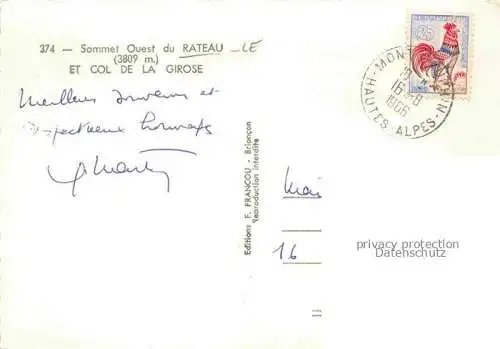 374 — Sommet Ouest du RATEAU - LE
(3809 m.)
ET COL DE LA GIROSE
Meilleurs souvenirs et
respectueux hommages
Editions F. FRANCOU - Briançon
Reproduction interdite
0,25
16-8
1966
HAUTES ALPES
16
privacy protection
Datenschutz